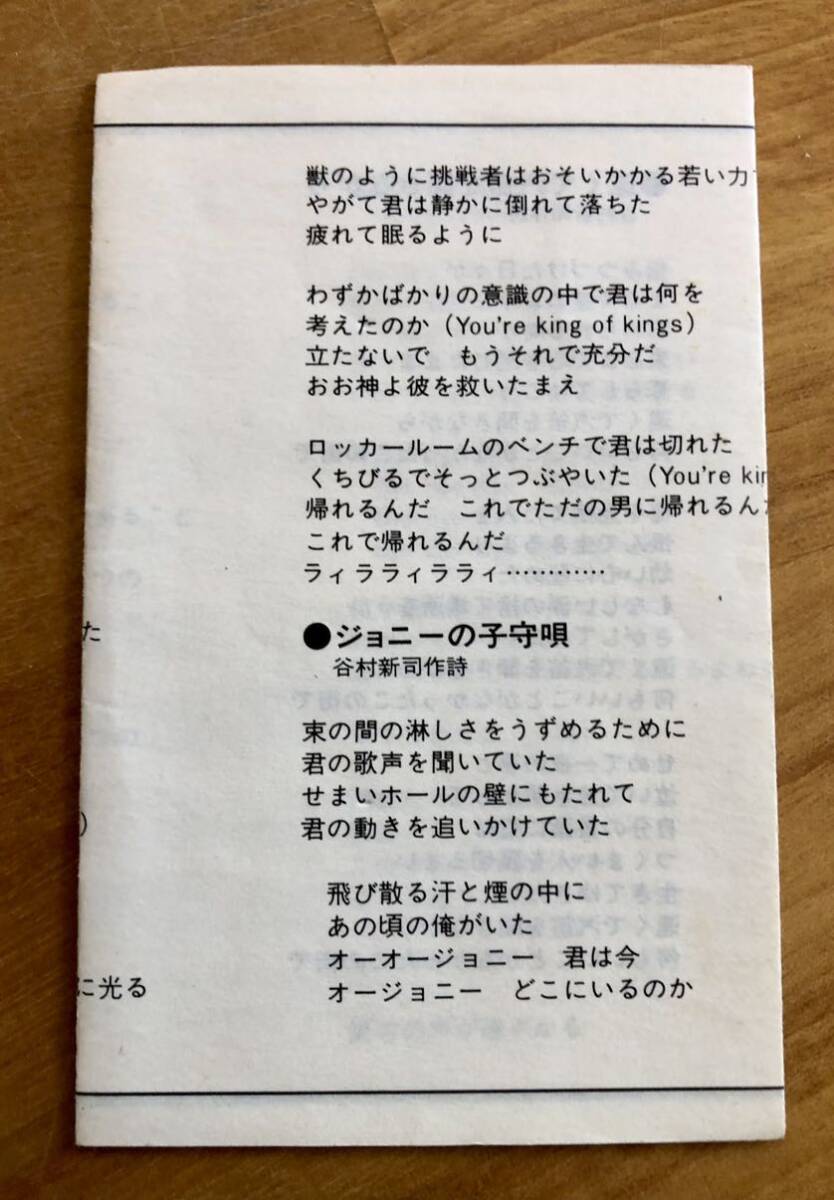 獣のように挑戦者はおそいかかる若い力で
やがて君は静かに倒れて落ちた
疲れて眠るように
わずかばかりの意識の中で君は何を
考えたのか（You're king of kings）
立たないで　もうそれで充分だ
おお神よ彼を救いたまえ
ロッカールームのベンチで君は切れた
くちびるでそっとつぶやいた（You're
帰れるんだ　これでただの男に帰れるん
これで帰れるんだ
ライラライラライ…………
た
●ジョニーの子守唄
谷村新司作詩
束の間の淋しさをうずめるために
君の歌声を聞いていた
せまいホールの壁にもたれて
君の動きを追いかけていた
）
飛び散る汗と煙の中に
あの頃の俺がいた
オーオージョニー　君は今
に光る
オージョニー　どこにいるのか